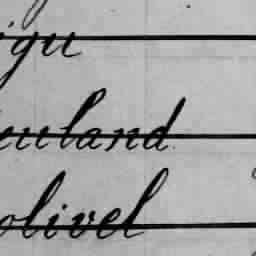 igu
euland
olivel